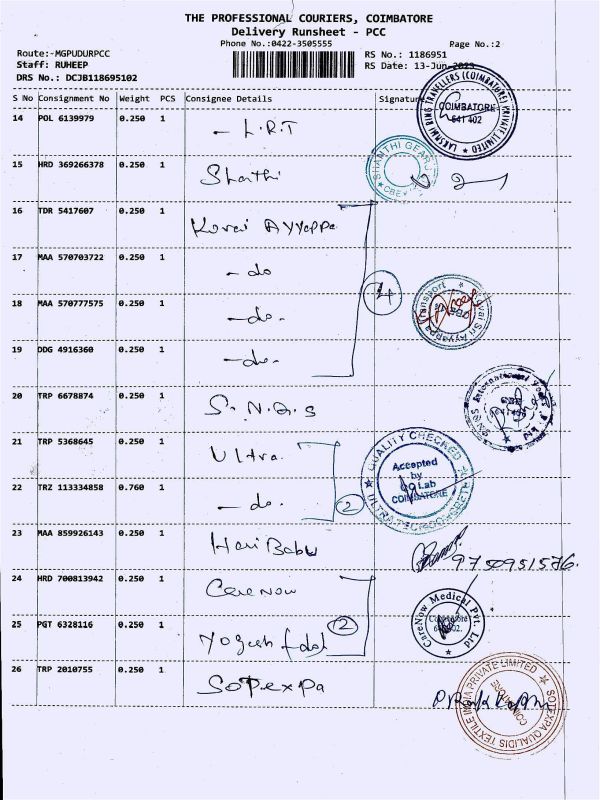 THE PROFESSIONAL COURIERS, COIMBATORE
Delivery Runsheet - PCC
Phone No.:0422-3505555
Page No.:2
Route:-MGPUDURPCC
RS No.: 1186951
Staff: RUHEEP
RS Date: 13-Jun-2023
DRS No.: DCJB118695102
S No Consignment No Weight PCS Consignee Details Signature
LAKSHMI RING TRAVELLERS (COIMBATORE) PRIVATE LIMITED
COIMBATORE
641 402
14 POL 6139979 0.250 1 - L.R.T
15 HRD 369266378 0.250 1 Shanthi
SHANTHI GEARS
CBE
16 TDR 5417607 0.250 1 Kovai Ayyappa
17 MAA 570703722 0.250 1 - do
4
18 MAA 570777575 0.250 1 - do.
Kovai Sri Ayyappa Transport
19 DDG 4916360 0.250 1 - do.
20 TRP 6678874 0.250 1 S.N.Q.S
SNQS International
21 TRP 5368645 0.250 1 Ultra.
QUALITY CHECKED
Accepted
by
QC Lab
COIMBATORE
22 TRZ 113334858 0.760 1 - do.
2
23 MAA 859926143 0.250 1 Hari Babu
9750951576.
24 HRD 700813942 0.250 1 Care Now
CareNow Medical Pvt. Ltd
Coimbatore
25 PGT 6328116 0.250 1 Yogesh
2
26 TRP 2010755 0.250 1 Sotexpa
SOTEXPA QUALIDIS TEXTILE INDIA PRIVATE LIMITED
COIMBATORE